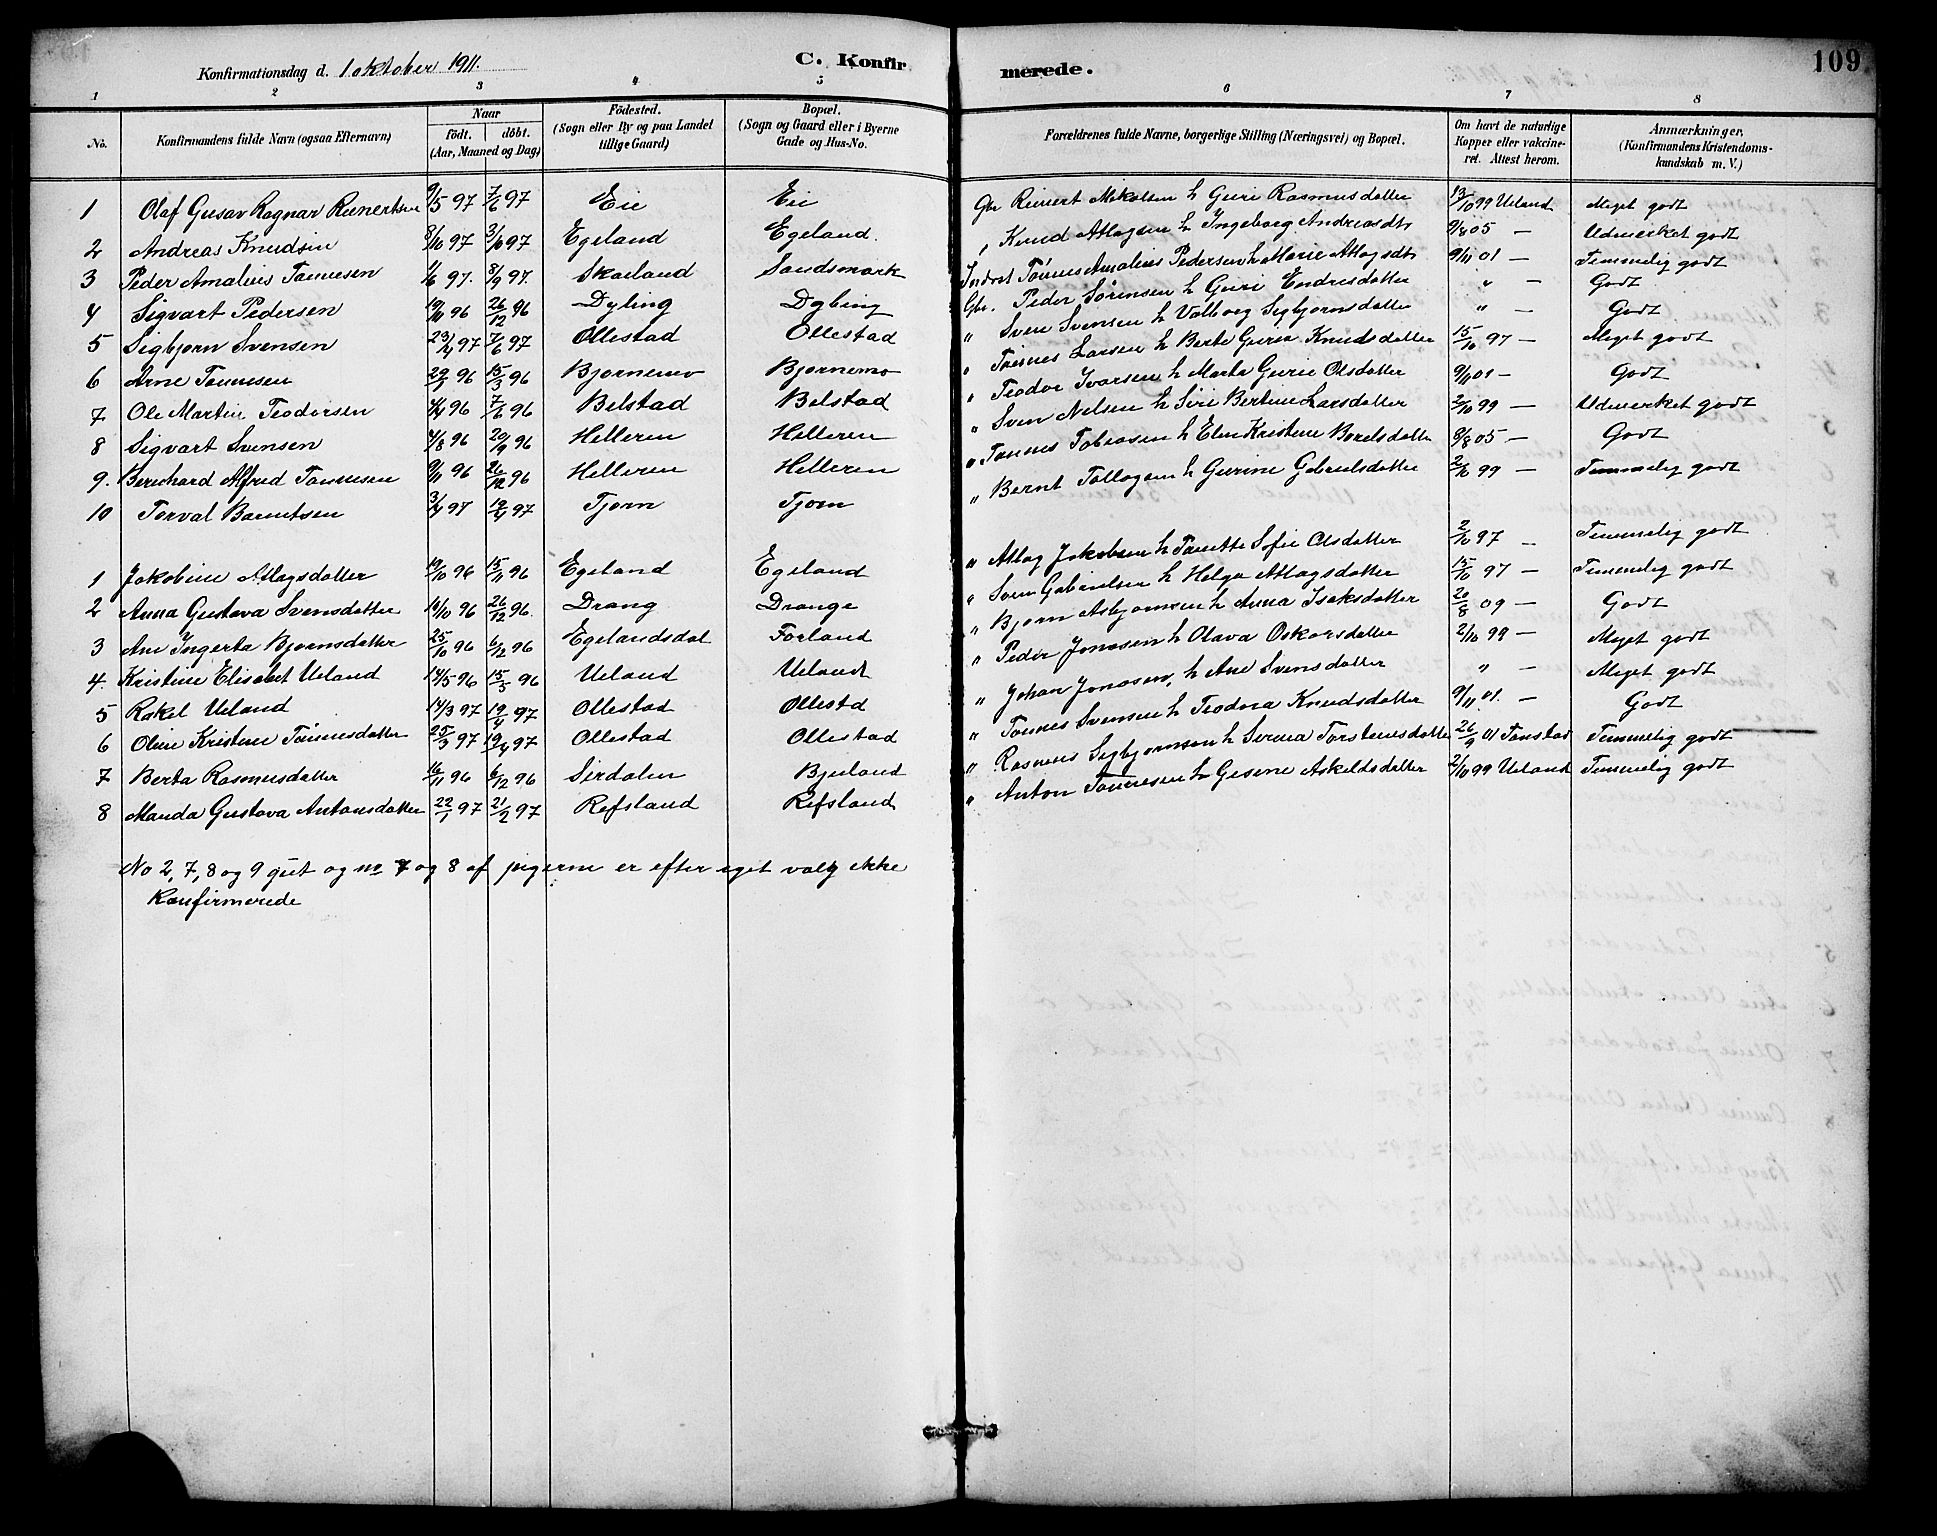 Konfirmationsdag d. 1 oktober 1911. C. Konfirmerede. 109
1 2 3 4 5 6 7 8
No. Konfirmandens fulde Navn (ogsaa Efternavn) Naar født. døbt. (Aar, Maaned og Dag) Fødested. (Sogn eller By og paa Landet tillige Gaard) Bopæl. (Sogn og Gaard eller i Byerne Gade og Hus-No. Forældrenes fulde Navne, borgerlige Stilling (Næringsvei) og Bopæl. Om havt de naturlige Kopper eller vakcineret. Attest herom. Anmærkninger, (Konfirmandens Kristendomskundskab m. V.)
1 Olaf Gusav Ragnar Reinertsen 9/5 97 7/6 97 Eie Eie Gbr Reinert Mikalsen h Guri Rasmusdatter 13/10 99 Ueland Meget godt
2 Andreas Knudsen 8/10 97 3/10 97 Egeland Egeland. " Knud Atlagsen h Ingeborg Andreasdtr 9/4 05 — Udmerket godt
3 Peder Amalius Tønnesen 1/6 97. 8/9 97. Skailand Sandsmark Indrst Tønnes Amalius Pedersen h Marie Atlagsdtr 9/11 01 — Temmelig godt
4 Sigvart Pedersen 19/10 96 26/12 96 Dyling Dybing Gbr. Peder Sørensen h Guri Endresdatter " — Godt
5 Sigbjørn Svensen 23/4 97 7/6 97 Ollestad Ollestad " Sven Svensen h Valborg Sigbjørnsdatter " — Godt
6 Arne Tønnesen 29/1 96 15/3 96 Bjørnemo Bjørnemo " Tønnes Larsen h Berte Guria Knudsdatter 15/10 97 — Meget godt
7 Ole Martin Teodorsen 4/4 96 7/6 96 Belstad Belstad " Teodor Ivarsen h Marta Gurie Olsdatter 9/11 01 — Godt
8 Sigvart Svensen 4/8 96 20/9 96 Helleren Helleren " Sven Nelsen h Siri Bertine Larsdatter 2/10 99 — Udmerket godt
9. Bernhard Alfred Tønnesen 9/11 96 26/12 96 Helleren Helleren " Tønnes Tobiasen h Elen Kristine Borelsdatter 8/8 05 — Godt
10 Torval Berntsen 3/4 97 19/4 97 Tjørn Tjørn " Bernt Tollagsen h Gurine Gabrielsdatter 2/10 99 — Temmelig godt
1 Jakobine Atlagsdatter 19/10 96 15/11 96 Egeland Egeland " Atlag Jakobsen h Tanette Sofie Olsdatter 2/10 97 — Temmelig godt
2 Anna Gustava Svensdatter 10/10 96 26/12 96. Drang Drange " Sven Gabrielsen h Helga Atlagsdatter 15/10 97 — Temmelig godt
3 Ane Ingerta Bjørnsdatter 25/10 96 6/12 96 Egelandsdal Førland " Bjørn Asbjørnsen h Anna Isaksdatter 20/8 09 — Godt
4. Kristine Elisabet Ueland 14/5 96 15/5 96 Ueland Ueland " Peder Jonasen h Olava Oskarsdatter 2/10 99 — Meget godt
5 Rakel Ueland 14/3 97 19/4 97 Ollestad Ollestd " Johan Jonasen, h Ane Svensdatter " — Meget godt
6 Oline Kristine Tønnesdatter 25/3 97 19/4 97 Ollestad Ollestad " Tønnes Svensen h Teodora Knudsdatter 9/11 01. — Godt
7 Berta Rasmusdatter 16/11 96 6/12 96 Sirdalen Bjuland " Rasmus Sigbjørnsen h Serina Torstensdatter 26/9 01 Tonstad Temmelig godt
8 Manda Gustava Antonsdatter 22/1 97 21/2 97 Refsland Refsland " Anton Tønnesen h Gesine Askeldsdatter 2/10 99 Ueland Temmelig godt
No 2, 7, 8 og 9 gut og no 7 og 8 af pigerne er efter eget valg ikke
Konfirmerede